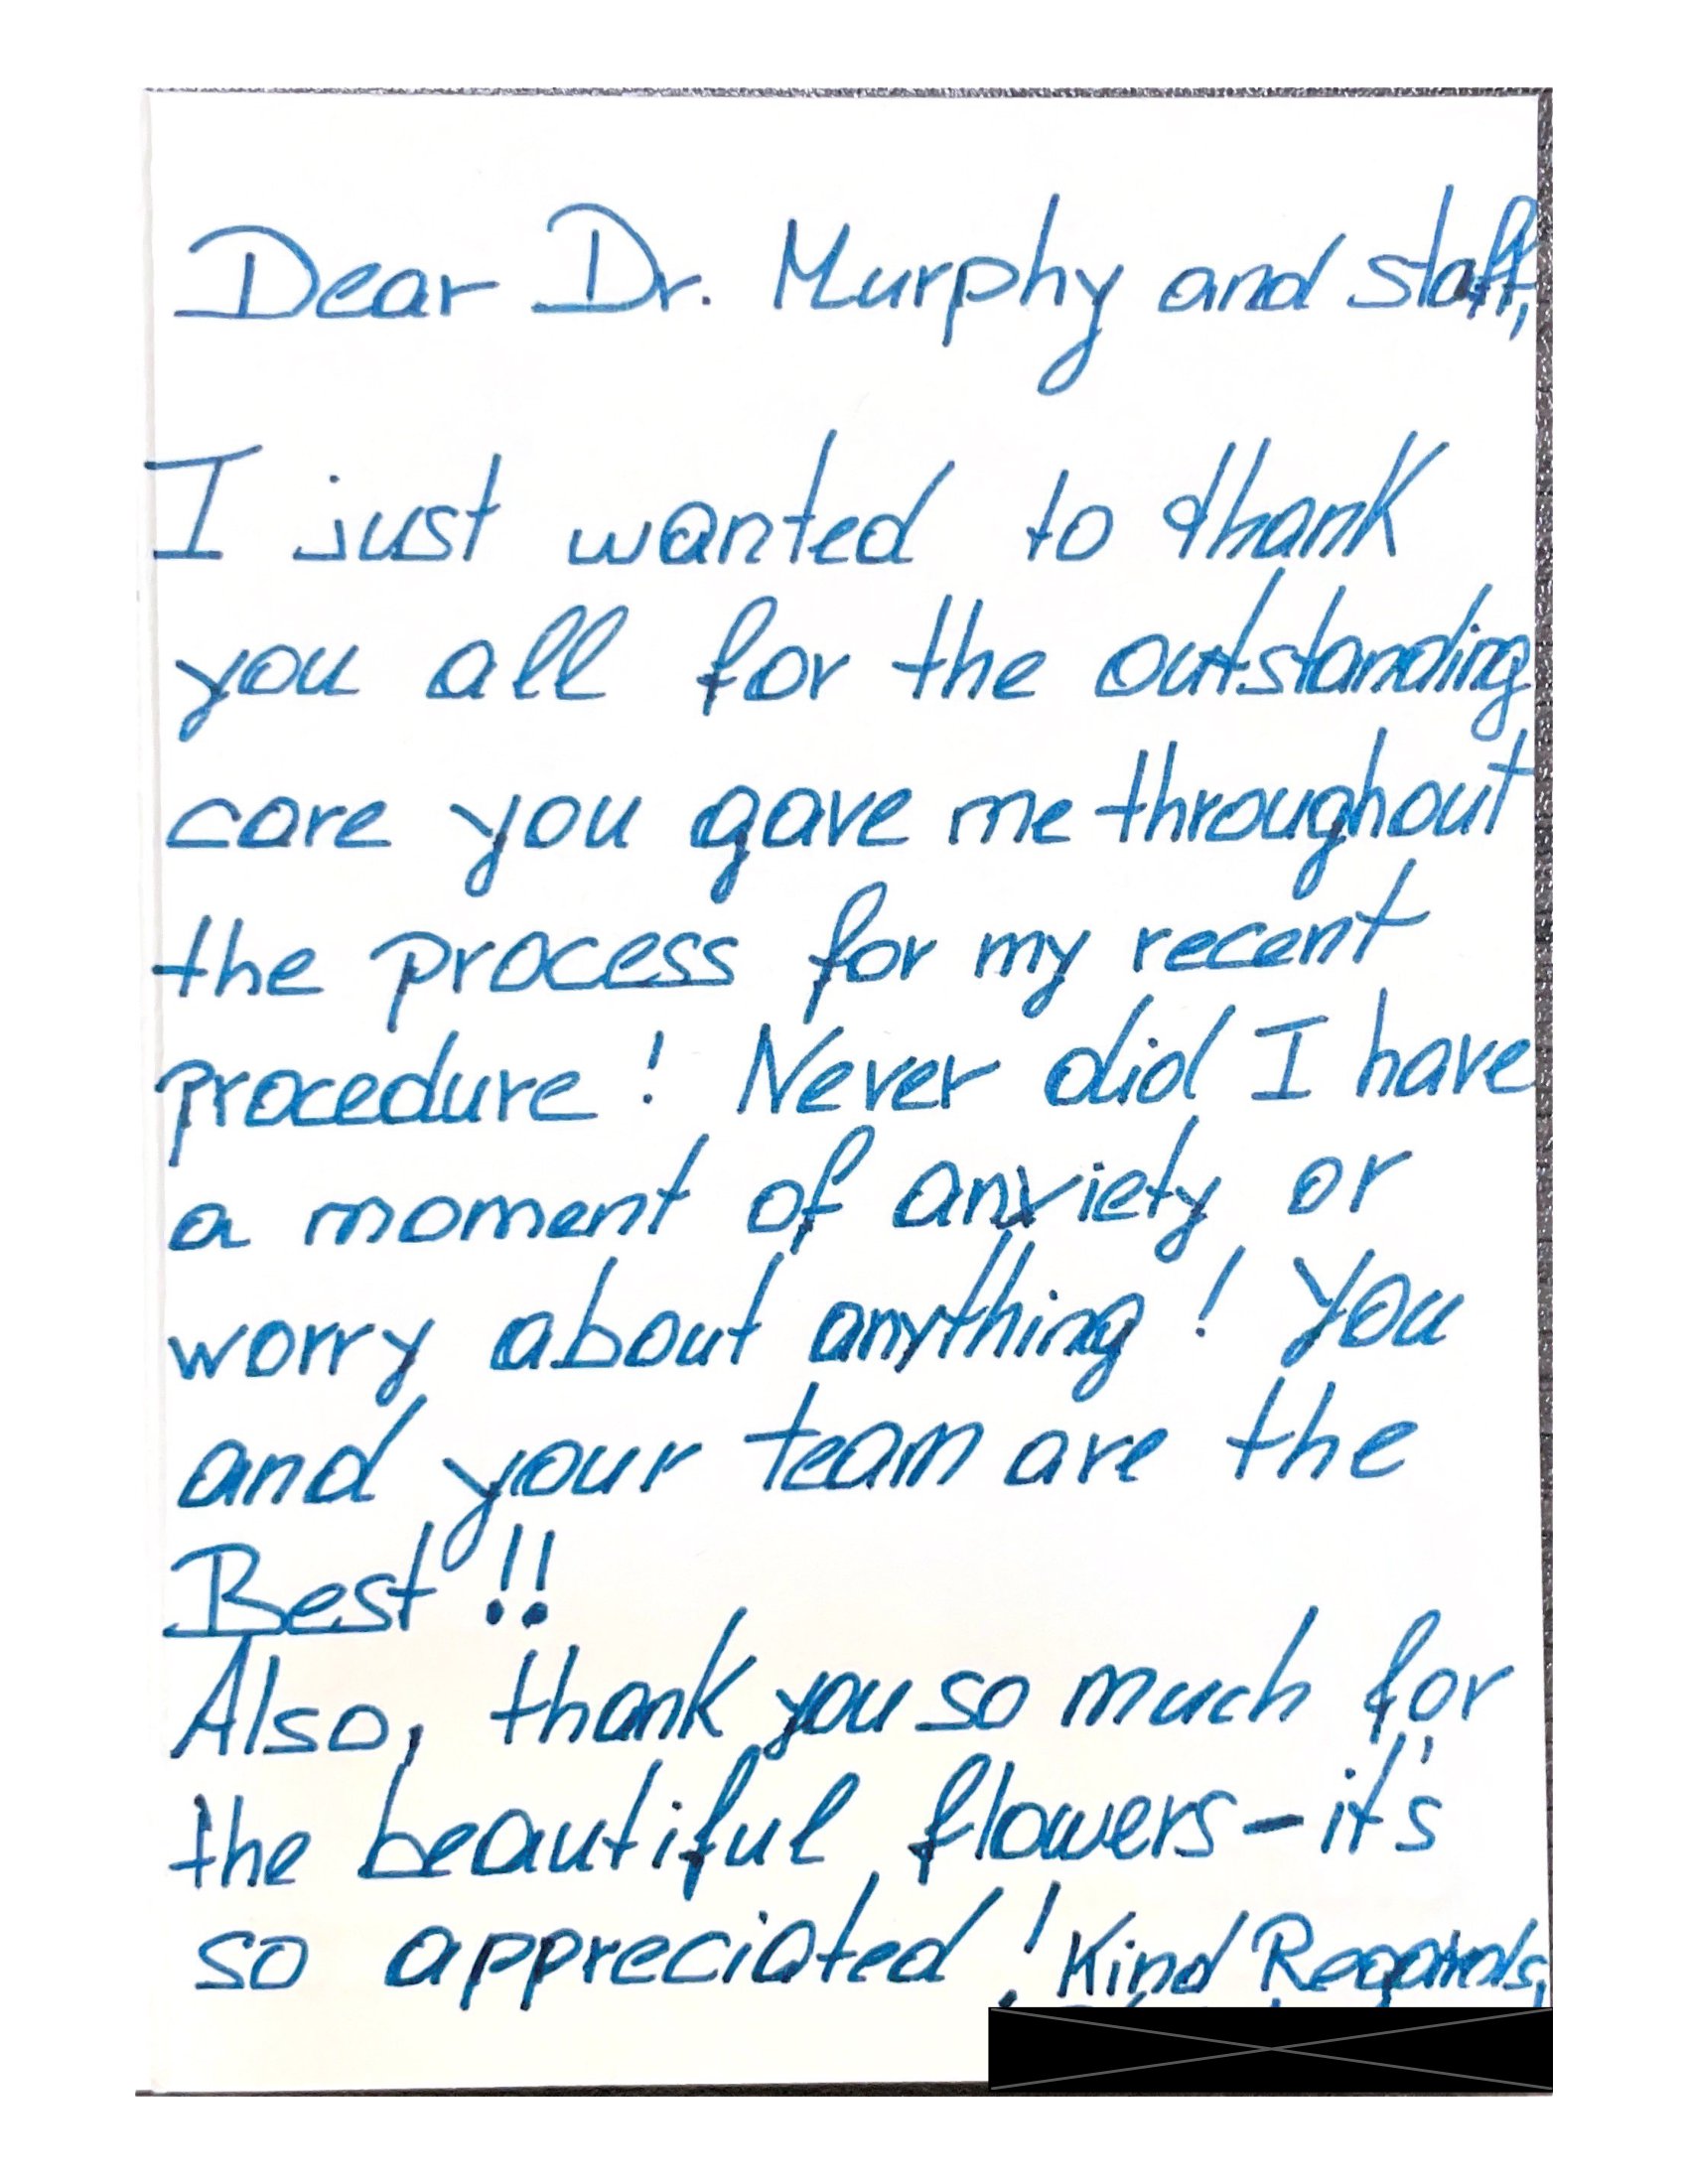 Dear Dr. Murphy and staff,
I just wanted to thank
you all for the outstanding
care you gave me throughout
the process for my recent
procedure! Never did I have
a moment of anxiety or
worry about anything! You
and your team are the
Best!!
Also, thank you so much for
the beautiful flowers-it's
so appreciated! Kind Regards,